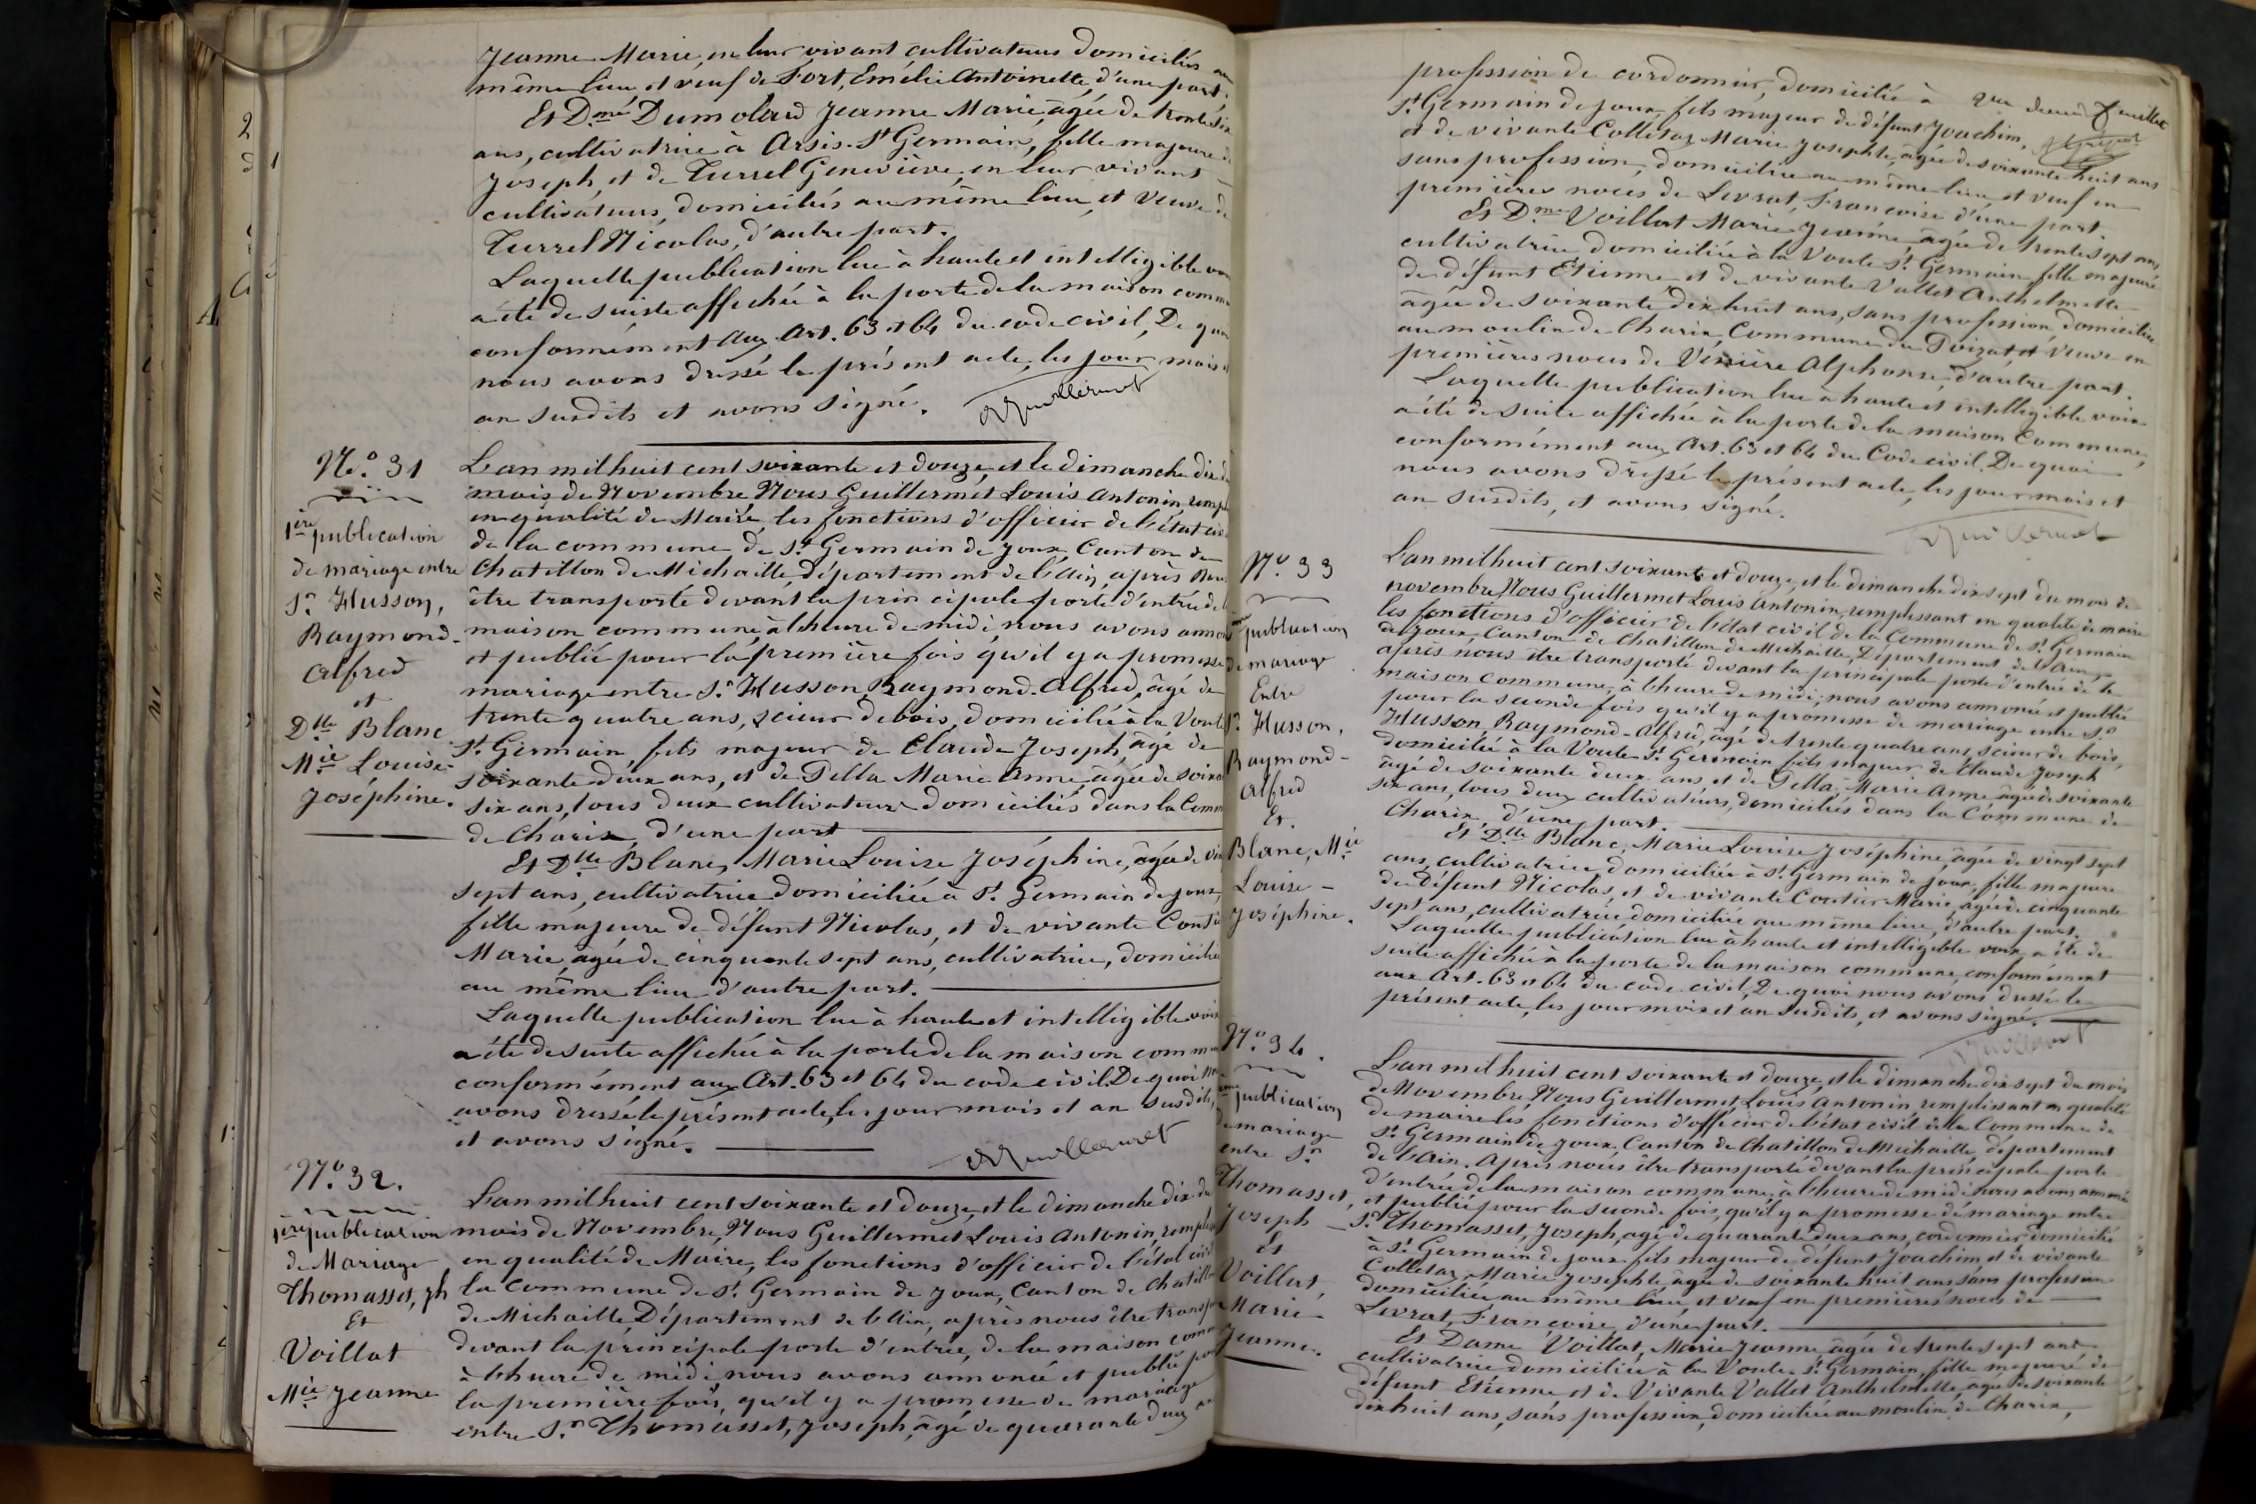 Jeanne Marie, en leur vivant cultivateurs domiciliés au
même lieu et veuf de Fort, Emélie Antoinette, d'une part.
Et D.me Dumolard Jeanne Marie, âgée de trente six
ans, cultivatrice à Arsis. St Germain, fille majeure de
Joseph, et de Turrel Geneviève, en leur vivant
cultivateurs, domiciliés au même lieu, et veuve de
Turrel Nicolas, d'autre part.
Laquelle publication lue à haute et intelligible voix
a été de suiste affichée à la porte de la maison comm
conformément aux Art. 63 et 64 du code civil, De quoi
nous avons dressé le présent acte, les jour, mois et
an susdits et avons signé. Guillermet
N.o 31
1ère publication
de mariage entre
Sr Husson,
Raymond-
Alfred
et
Dlle Blanc
Mie Louise-
Joséphine.
L'an mil huit cent soixante et douze, et le dimanche dix du
mois de Novembre Nous Guillermet Louis Antonin, rempl
en qualité de Maire, les fonctions d'officier de l'état civ
de la commune de St Germain de Joux Canton de
Chatillon de Michaille, département de l'Ain, après nous
être transporté devant la principale porte d'entrée de la
maison commune, à l'heure de midi, nous avons annon
et publié pour la première fois qu'il y a promesse
mariage entre Sr Husson, Raymond-Alfred, âgé de
trente quatre ans, scieur de bois, domicilié à la Voute
St Germain fils majeur de Claude Joseph, âgé de
soixante deux ans, et de Pella Marie Anne, âgée de soixa
six ans, tous deux cultivateurs domiciliés dans la Comm
de Charix, d'une part
Et Dlle Blanc, Marie Louise Joséphine, âgée de vin
sept ans, cultivatrice domiciliée à St Germain de Joux,
fille majeure de défunt Nicolas, et de vivante
Marie, âgée de cinquante sept ans, cultivatrice, domiciliée
au même lieu d'autre part.
Laquelle publication lue à haute et intelligible voix
a été de suite affichée à la porte de la maison comm
conformément aux Art. 63 et 64 du code civil. De quoi nous
avons dressé le présent acte, les jour mois et an susdits,
et avons signé. Guillermet
N.o 32.
1ère publication
de Mariage
Thomasset, Jh
Et
Voillat
Mie Jeanne
L'an mil huit cent soixante et douze, et le dimanche dix du
mois de Novembre, Nous Guillermet Louis Antonin, rempliss
en qualité de Maire, les fonctions d'officier de l'état civil
la Commune de St Germain de Joux, Canton de Chatillon
de Michaille, Département de l'Ain, après nous être transpor
devant la principale porte d'entrée, de la maison comm
à l'heure de midi, nous avons annoncé et publié pour
la première fois, qu'il y a promesse de mariage
entre Sr Thomasset, Joseph, âgé de quarante deux ans
profession de cordonnier, domicilié à
St Germain de Joux, fils majeur de défunt Joachim,
et de vivante Colletaz Marie Josephte, âgée de soixante huit ans
sans profession, domiciliée au même lieu, et veuf en
premières noces de Livrat, Françoise d'une part.
Et D.me Voillat Marie Jeanne, âgée de trente sept ans
cultivatrice domiciliée à la Voute St Germain fille majeure
de défunt Etienne et de vivante Vallet Anthelmette
âgée de soixante dix huit ans, sans profession, domiciliée
au moulin de Charix, Commune du Poizat, et veuve en
premières noces de Venière Alphonse, d'autre part.
Laquelle publication lue à haute et intelligible voix
a été de suite affichée à la porte de la maison Commune,
conformément aux Art. 63 et 64 du Code civil. De quoi
nous avons dressé le présent acte, les jour mois et
an susdits, et avons signé.
Guillermet
N.o 33
publication
de mariage
Entre
Sr Husson,
Raymond-
Alfred
Et.
Blanc, Mie
Louise-
Joséphine.
L'an mil huit cent soixante et douze, et le dimanche dix sept du mois de
novembre, Nous Guillermet Louis Antonin, remplissant en qualité de maire
les fonctions d'officier de l'état civil de la Commune de St Germain
de Joux, Canton de Chatillon de Michaille, Département de l'Ain,
après nous être transporté devant la principale porte d'entrée de la
maison Commune, à l'heure de midi, nous avons annoncé et publié
pour la seconde fois qu'il y a promesse de mariage entre Sr
Husson, Raymond-Alfred, âgé de trente quatre ans, scieur de bois,
domicilié à la Voute St Germain fils majeur de Claude Joseph
âgé de soixante deux ans et de Pella, Marie Anne, âgée de soixante
six ans, tous deux cultivateurs, domiciliés dans la Commune de
Charix, d'une part.
Et Dlle Blanc, Marie Louise Joséphine, âgée de vingt sept
ans, cultivatrice domiciliée à St Germain de Joux, fille majeure
de défunt Nicolas, et de vivante Marie, âgée de cinquante
sept ans, cultivatrice domiciliée au même lieu, d'autre part.
Laquelle publication lue à haute et intelligible voix a été de
suite affichée à la porte de la maison commune, conformément
aux Art. 63 et 64 du code civil, De quoi nous avons dressé le
présent acte, les jour mois et an susdits, et avons signé.
Guillermet
N.o 34.
publication
de mariage
entre Sr
Thomasset,
Joseph
Et
Voillat,
Marie-
Jeanne.
L'an mil huit cent soixante et douze, et le dimanche dix sept du mois
de Novembre, Nous Guillermet, Louis Antonin, remplissant en qualité
de maire les fonctions d'officier de l'état civil de la Commune de
St Germain de Joux, Canton de Chatillon de Michaille, département
de l'Ain. Après nous être transporté devant la principale porte
d'entrée de la maison commune, à l'heure de midi, nous avons annoncé
et publié pour la seconde fois, qu'il y a promesse de mariage entre
Sr Thomasset, Joseph, âgé de quarante deux ans, cordonnier domicilié
à St Germain de Joux fils majeur de défunt Joachim et de vivante
Colletaz Marie Josephte âgée de soixante huit ans sans profession
domiciliée au même lieu, et veuf en premières noces de
Livrat, Françoise, d'une part.
Et Dame Voillat, Marie Jeanne, âgée de trente sept ans
cultivatrice domiciliée à la Voute St Germain, fille majeure de
défunt Etienne et de Vivante Vallet Anthelmette, âgée de soixante
dix huit ans, sans profession, domiciliée au moulin de Charix,